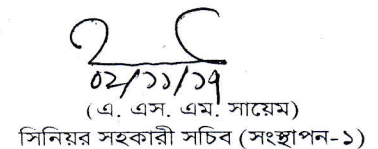 ০২/১১/১৭
(এ. এস. এম. সায়েম)
সিনিয়র সহকারী সচিব (সংস্থাপন-১)